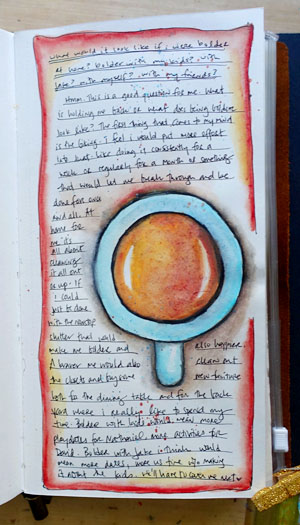 What would it look like if I were bolder
at home? Bolder with my kids? with
Jake? with myself? with my friends?
Hmm. This is a good question for me. What
is holding me back? or what does being bolder
look like? The first thing that comes to my mind
is the I feel I would put more effort
into that. Like doing it consistently for a
week or regularly for a month or something
that would let me break through and be
done for ever
and all. At
home for
me it's
all about
cleaning
it all out
or up. If
I could
just be done
with the
clutter that would also happier
make me bolder and clean out
braver me would also new furniture
the closets and buy some
both for the dining table and for the back
yard where I really like to spend my
time. Bolder with kids would mean more
playdates for Nathaniel more activities for
David. Bolder with Jake I think would
mean more dates, more us time, making
it about the kids. We'll have to see